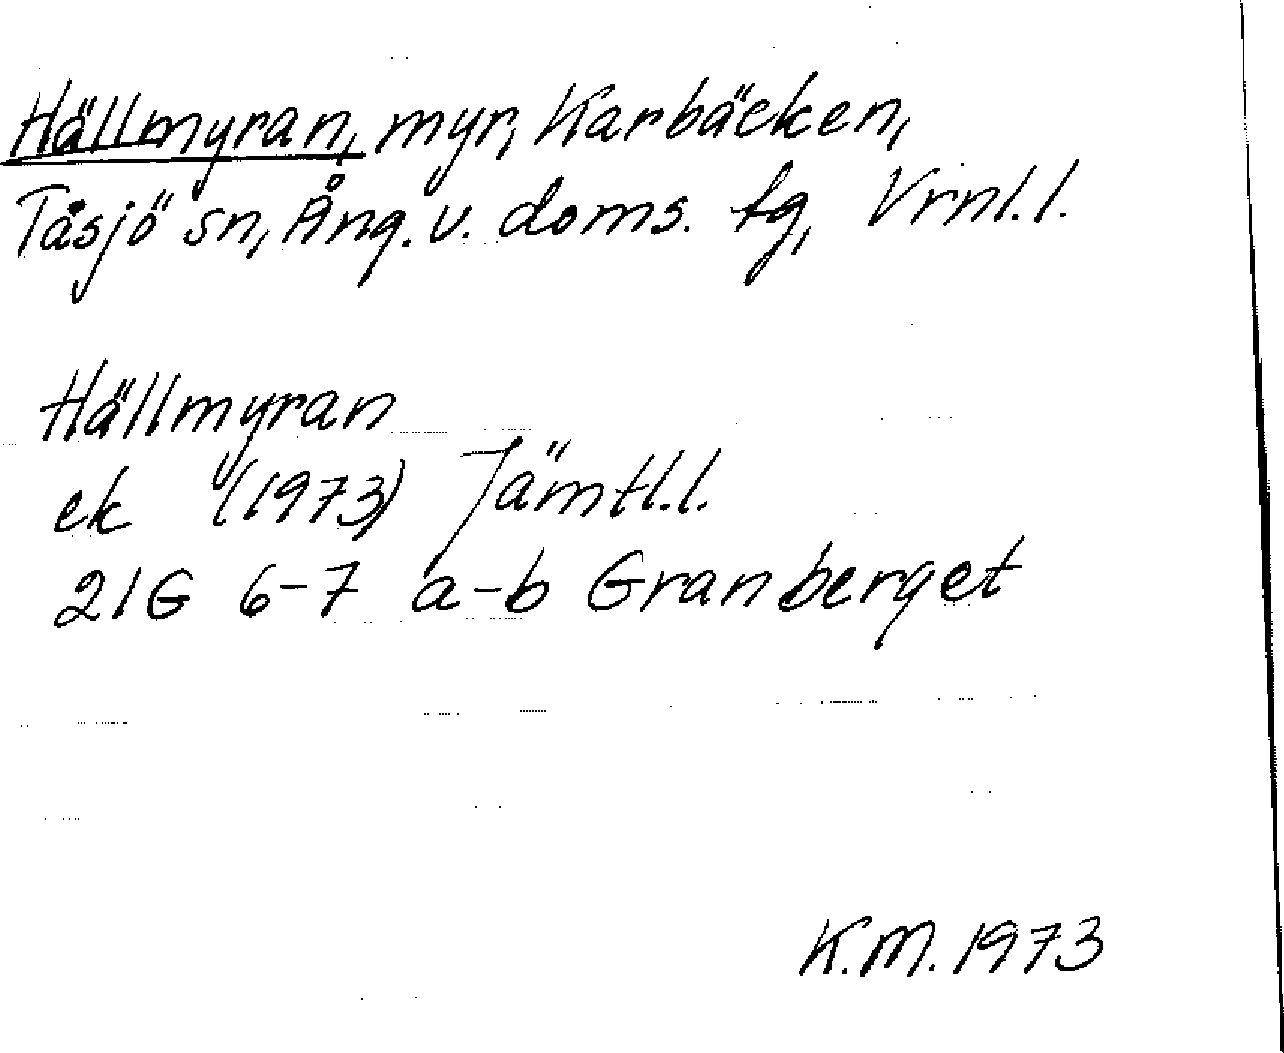 Hällmyran, myr, Karbäcken,
Tåsjö sn, Ång. v. doms. tg, Vrnl. l.
Hällmyran
ek (1973) Jämtl. l.
21G 6-7 a-b Granberget
K.M. 1973